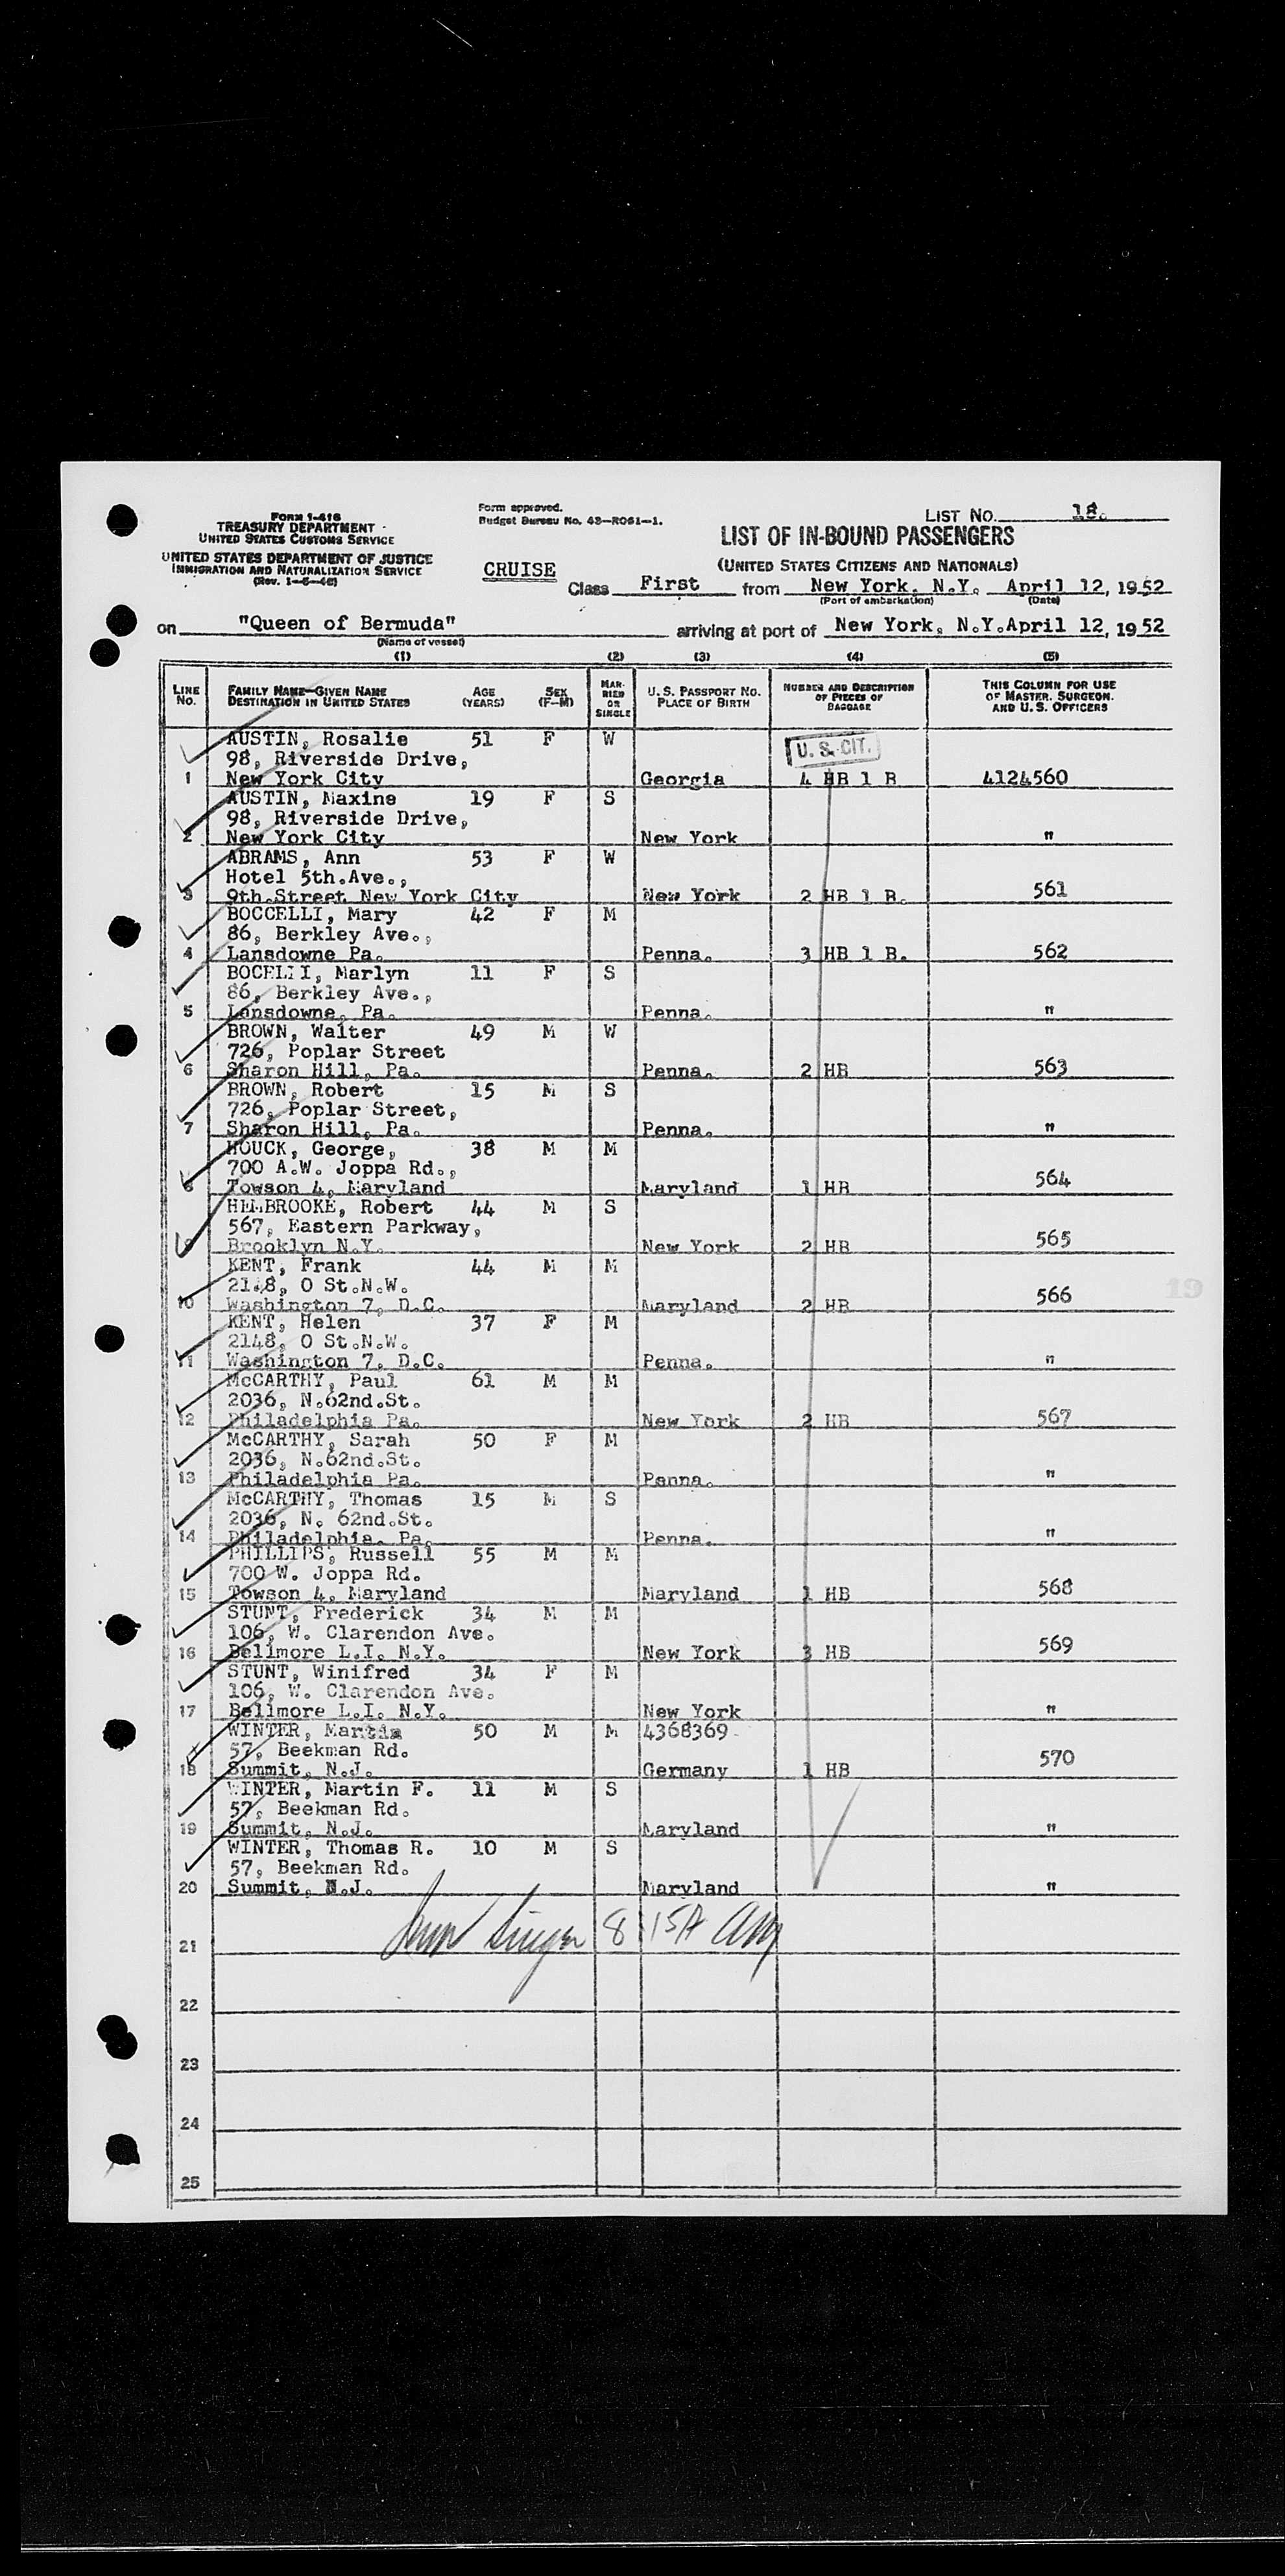 FORM I-418
TREASURY DEPARTMENT
UNITED STATES CUSTOMS SERVICE
UNITED STATES DEPARTMENT OF JUSTICE
IMMIGRATION AND NATURALIZATION SERVICE
Form approved.
Budget Bureau No. 43—R061—1.
LIST NO. 18.
LIST OF IN-BOUND PASSENGERS
(UNITED STATES CITIZENS AND NATIONALS)
CRUISE
Class First from New York, N.Y. April 12, 1952
(Port of embarkation) (Date)
on "Queen of Bermuda" arriving at port of New York, N.Y. April 12, 1952
(Name of vessel)
(1) (2) (3) (4) (5)
LINE No. FAMILY NAME—GIVEN NAME DESTINATION IN UNITED STATES AGE (YEARS) SEX (F—M) MARRIED OR SINGLE U. S. PASSPORT NO. PLACE OF BIRTH NUMBER AND DESCRIPTION OF PIECES OF BAGGAGE THIS COLUMN FOR USE OF MASTER, SURGEON, AND U. S. OFFICERS
AUSTIN, Rosalie 51 F W U. S. CIT.
98, Riverside Drive,
1 New York City Georgia 4 HB 1 B 4124560
AUSTIN, Maxine 19 F S
98, Riverside Drive,
2 New York City New York "
ABRAMS, Ann 53 F W
Hotel 5th.Ave.,
3 9th.Street New York City New York 2 HB 1 B. 561
BOCCELLI, Mary 42 F M
86, Berkley Ave.,
4 Lansdowne Pa. Penna. 3 HB 1 B. 562
BOCELII, Marlyn 11 F S
86, Berkley Ave.,
5 Lansdowne, Pa. Penna. "
BROWN, Walter 49 M W
726, Poplar Street
6 Sharon Hill, Pa. Penna. 2 HB 563
BROWN, Robert 15 M S
726, Poplar Street,
7 Sharon Hill, Pa. Penna. "
HOUCK, George, 38 M M
700 A.W. Joppa Rd.,
8 Towson 4, Maryland Maryland 1 HB 564
HELBROOKE, Robert 44 M S
567, Eastern Parkway,
9 Brooklyn N.Y. New York 2 HB 565
KENT, Frank 44 M M
2148, O St.N.W.
10 Washington 7, D.C. Maryland 2 HB 566
KENT, Helen 37 F M
2148, O St.N.W.
11 Washington 7, D.C. Penna. "
McCARTHY, Paul 61 M M
2036, N.62nd.St.
12 Philadelphia Pa. New York 2 HB 567
McCARTHY, Sarah 50 F M
2036, N.62nd.St.
13 Philadelphia Pa. Penna. "
McCARTHY, Thomas 15 M S
2036, N. 62nd.St.
14 Philadelphia, Pa. Penna. "
PHILLIPS, Russell 55 M M
700 W. Joppa Rd.
15 Towson 4, Maryland Maryland 1 HB 568
STUNT, Frederick 34 M M
106, W. Clarendon Ave.
16 Bellmore L.I. N.Y. New York 3 HB 569
STUNT, Winifred 34 F M
106, W. Clarendon Ave.
17 Bellmore L.I. N.Y. New York "
WINTER, Martin 50 M M 4368369
57, Beekman Rd.
18 Summit, N.J. Germany 1 HB 570
WINTER, Martin F. 11 M S
57, Beekman Rd.
19 Summit, N.J. Maryland "
WINTER, Thomas R. 10 M S
57, Beekman Rd.
20 Summit, N.J. Maryland "
Singer 8 15A
21
22
23
24
25
19